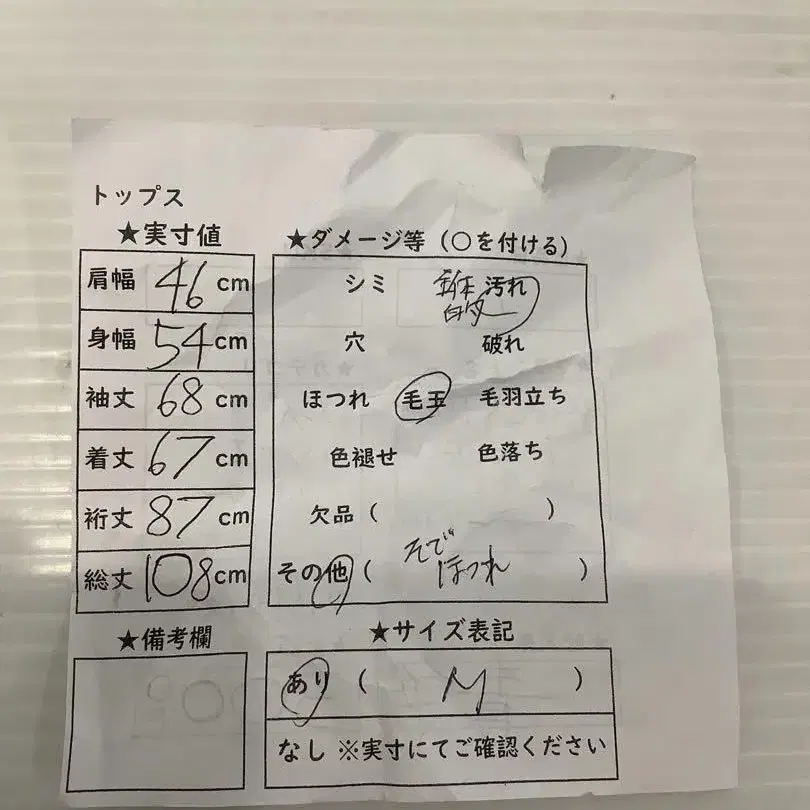 トップス
★実寸値
肩幅 46 cm
身幅 54 cm
袖丈 68 cm
着丈 67 cm
裄丈 87 cm
総丈 108 cm
★ダメージ等（○を付ける）
シミ 全体 汚れ
穴 破れ
ほつれ 毛玉 毛羽立ち
色褪せ 色落ち
欠品（ ）
その他（ そで
ほつれ ）
★備考欄
★サイズ表記
あり（ M ）
なし ※実寸にてご確認ください